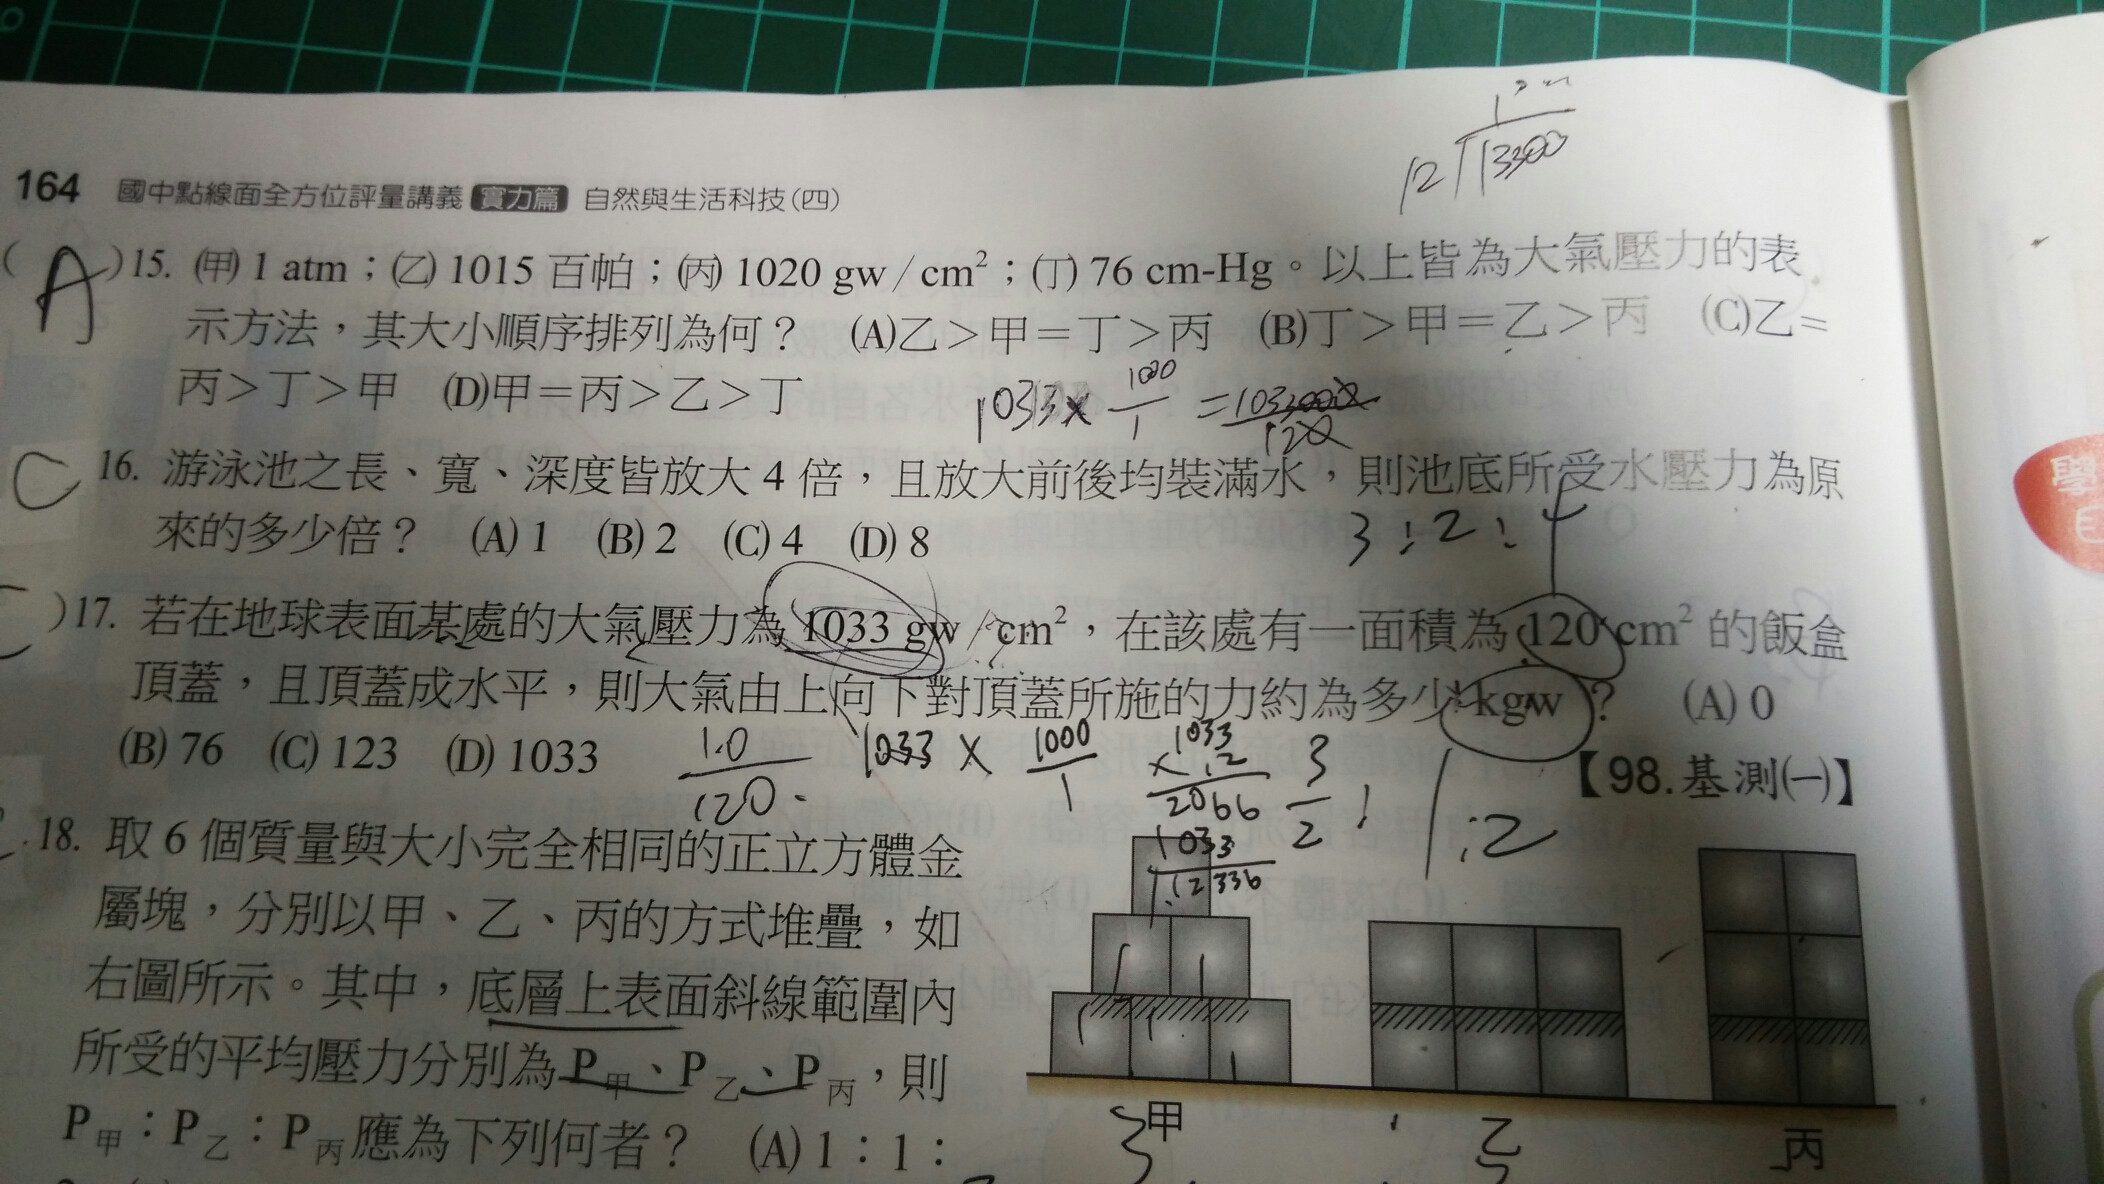 164 國中點線面全方位評量講義 實力篇 自然與生活科技(四)
12 13300
( A )15. (甲) 1 atm；(乙) 1015 百帕；(丙) 1020 gw/cm²；(丁) 76 cm-Hg。以上皆為大氣壓力的表
示方法，其大小順序排列為何？ (A)乙＞甲＝丁＞丙 (B)丁＞甲＝乙＞丙 (C)乙＝
丙＞丁＞甲 (D)甲＝丙＞乙＞丁
1033 × 1000/1 =
C 16. 游泳池之長、寬、深度皆放大 4 倍，且放大前後均裝滿水，則池底所受水壓力為原
來的多少倍？ (A) 1 (B) 2 (C) 4 (D) 8
3:2:4
)17. 若在地球表面某處的大氣壓力為 1033 gw/cm²，在該處有一面積為 120 cm² 的飯盒
頂蓋，且頂蓋成水平，則大氣由上向下對頂蓋所施的力約為多少 kgw？ (A) 0
(B) 76 (C) 123 (D) 1033
【98.基測(一)】
1.0
120
1033 × 1000/1
1033
×1.2
2066
1033
12336
3/2 :
1:2
18. 取 6 個質量與大小完全相同的正立方體金
屬塊，分別以甲、乙、丙的方式堆疊，如
右圖所示。其中，底層上表面斜線範圍內
所受的平均壓力分別為 P甲、P乙、P丙，則
P甲：P乙：P丙應為下列何者？ (A) 1：1：
甲
乙
丙
3
學